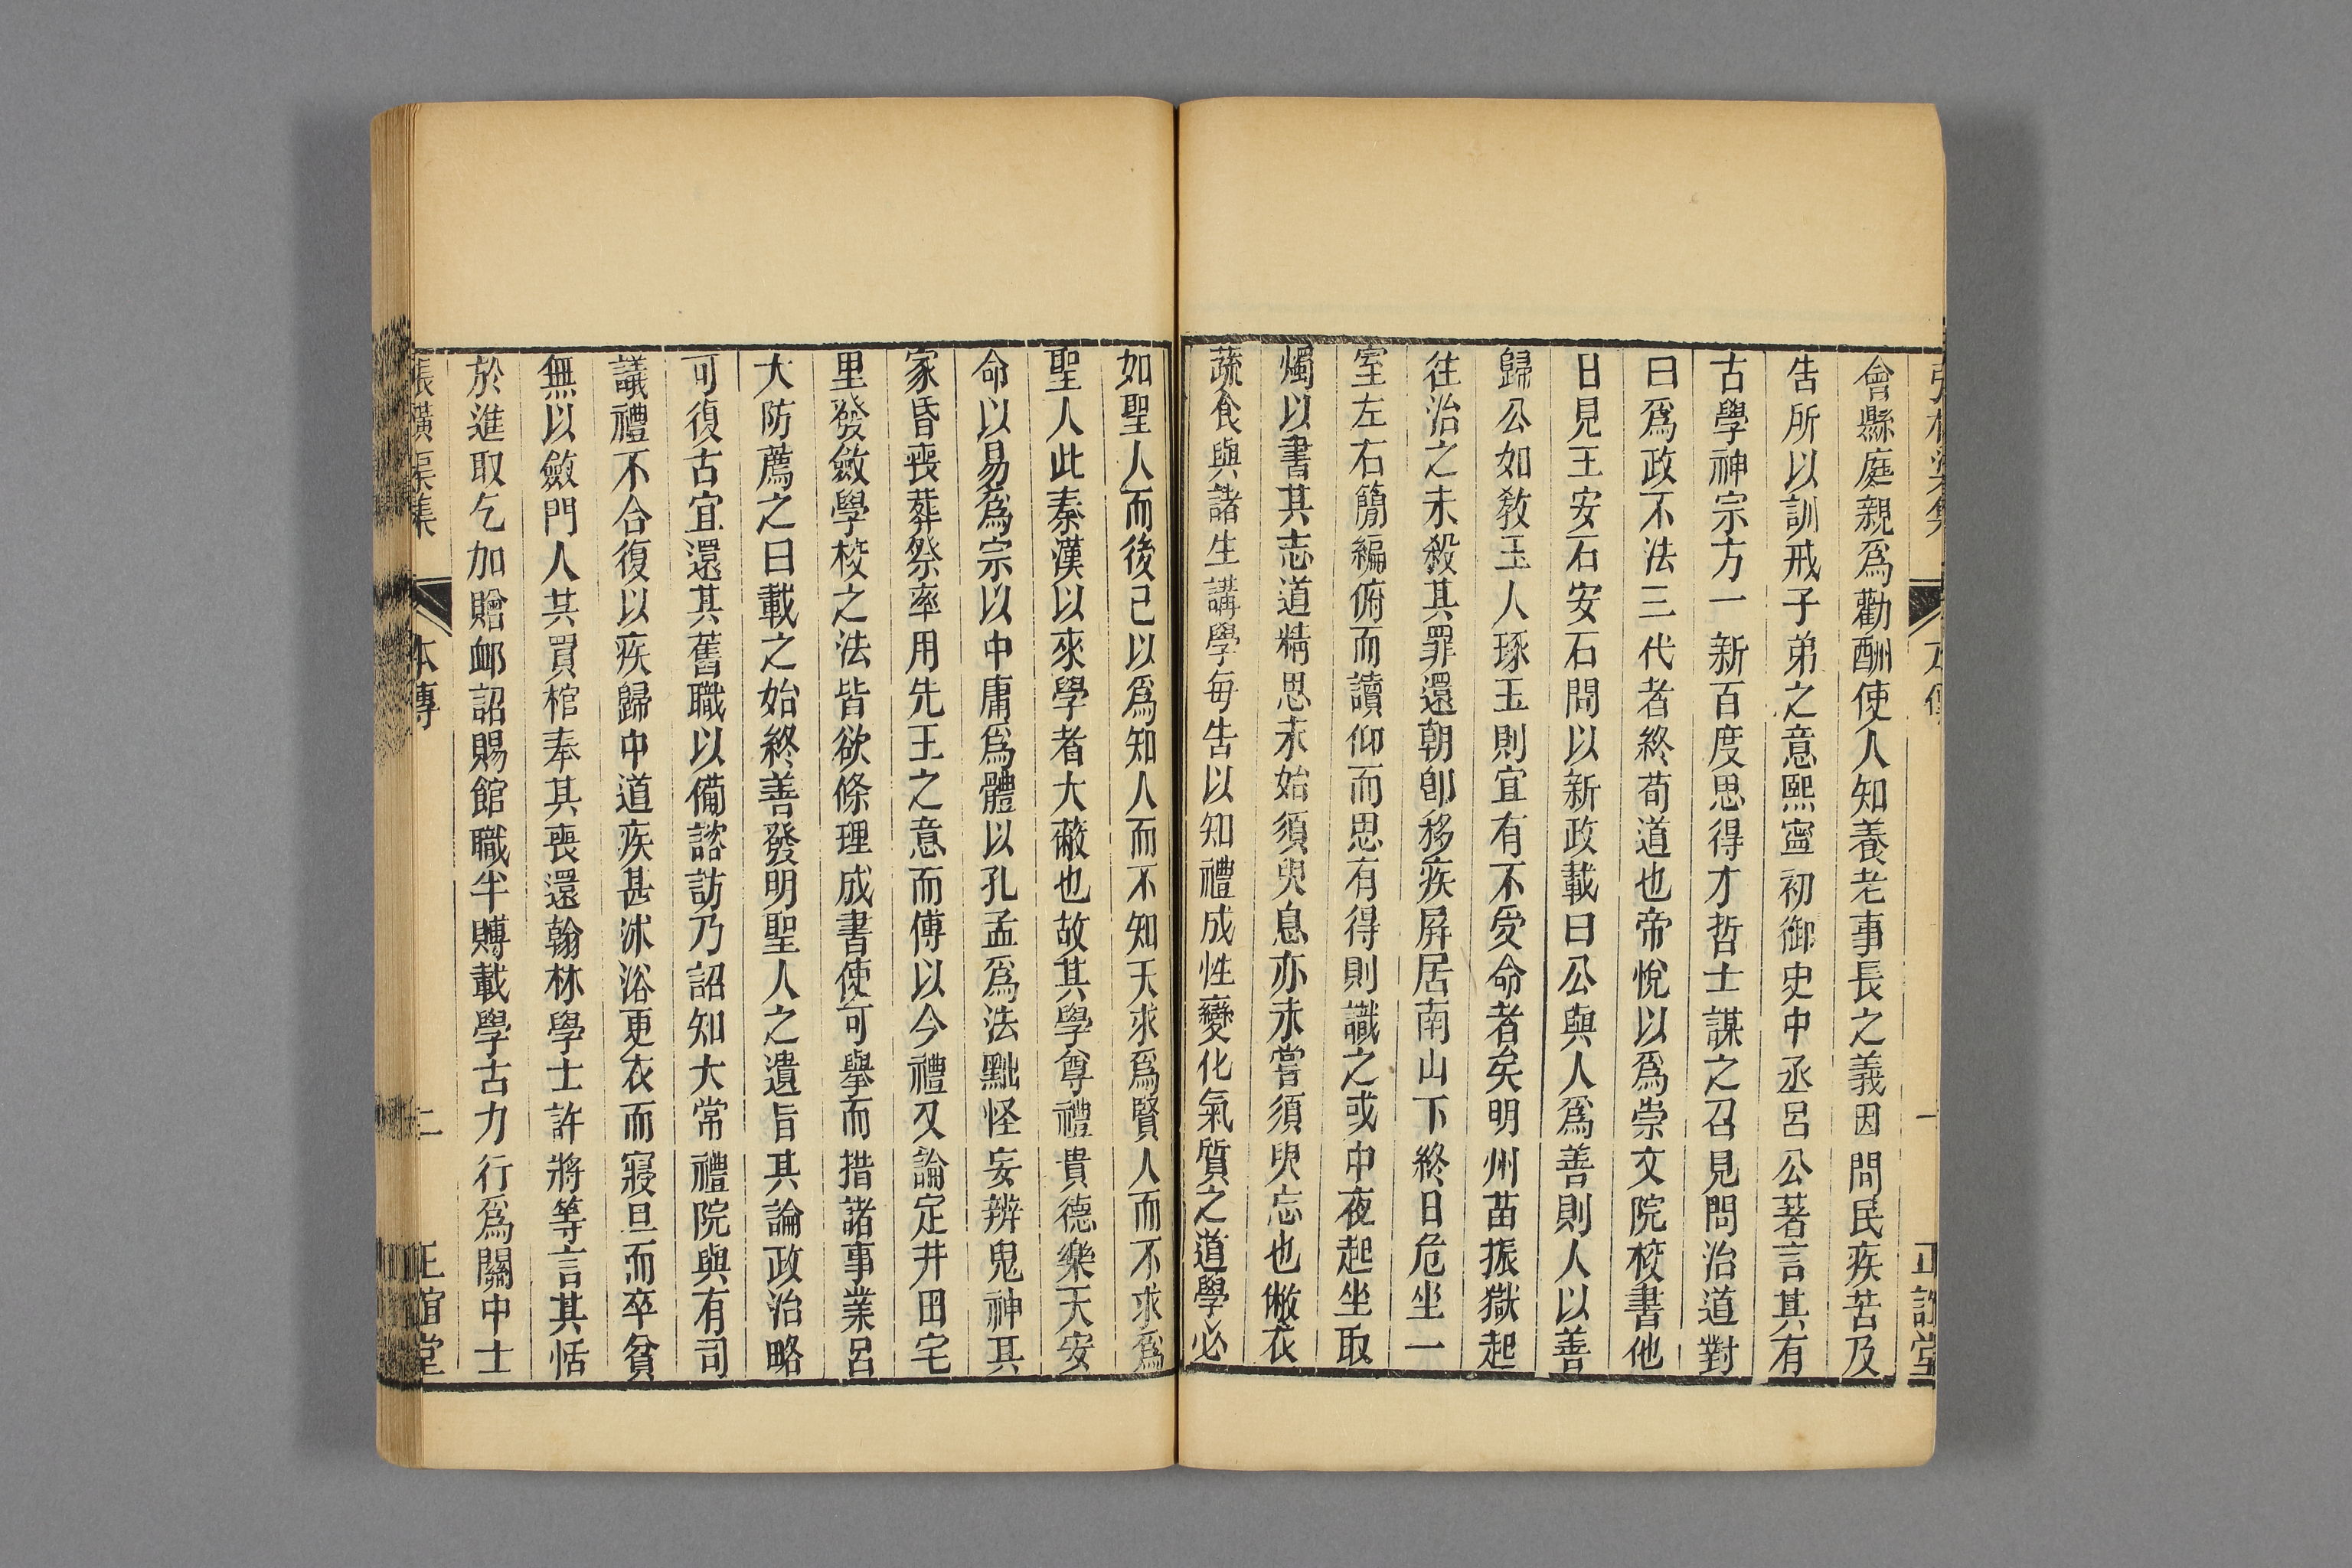 會縣庭親爲勸酬使人知養老事長之義因問民疾苦及
告所以訓戒子弟之意熙寧初御史中丞呂公著言其有
古學神宗方一新百度思得才哲士謀之召見問治道對
曰爲政不法三代者終苟道也帝悅以爲崇文院校書他
日見王安石安石問以新政載曰公與人爲善則人以善
歸公如敎玉人琢玉則宜有不受命者矣明州苗振獄起
往治之末殺其罪還朝卽移疾屏居南山下終日危坐一
室左右簡編俯而讀仰而思有得則識之或中夜起坐取
燭以書其志道精思未始須臾息亦未嘗須臾忘也敝衣
蔬食與諸生講學每告以知禮成性變化氣質之道學必
如聖人而後已以爲知人而不知天求爲賢人而不求爲
聖人此秦漢以來學者大蔽也故其學尊禮貴德樂天安
命以易爲宗以中庸爲體以孔孟爲法黜怪妄辨鬼神其
家昏喪葬祭率用先王之意而傅以今禮又論定井田宅
里發斂學校之法皆欲條理成書使可舉而措諸事業呂
大防薦之曰載之始終善發明聖人之遺旨其論政治略
可復古宜還其舊職以備諮訪乃詔知大常禮院與有司
議禮不合復以疾歸中道疾甚沐浴更衣而寢旦而卒貧
無以斂門人共買棺奉其喪還翰林學士許將等言其恬
於進取乞加贈卹詔賜館職半賻載學古力行爲關中士
張橫渠集 本傳 二 正誼堂